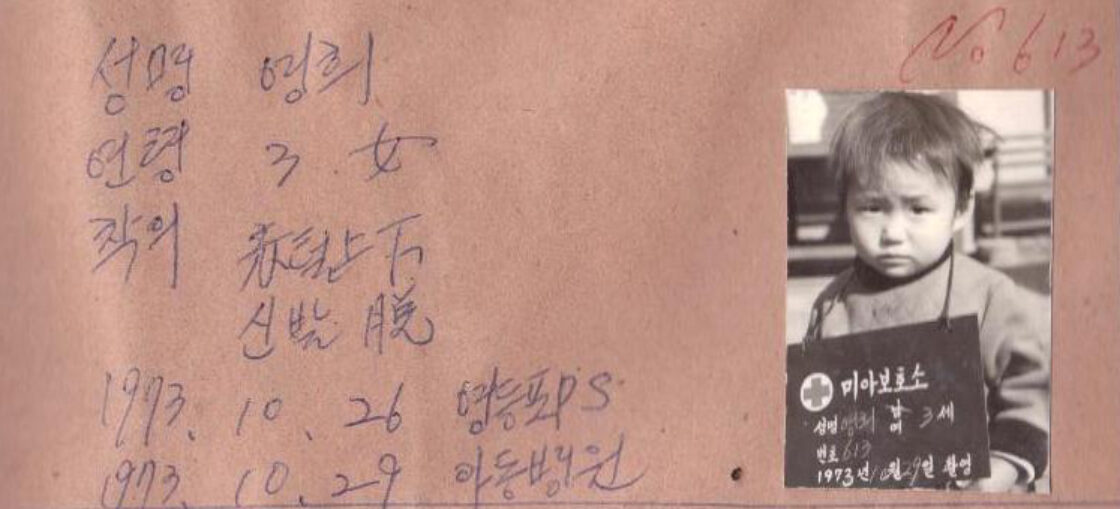 No 613
성명 영희
연령 3 女
착의 上下
신발 脫
1973. 10. 26 영등포PS
1973. 10. 29 아동병원
미아보호소
성명 영희 남 여 3세
번호 613
1973년 10월 29일 촬영